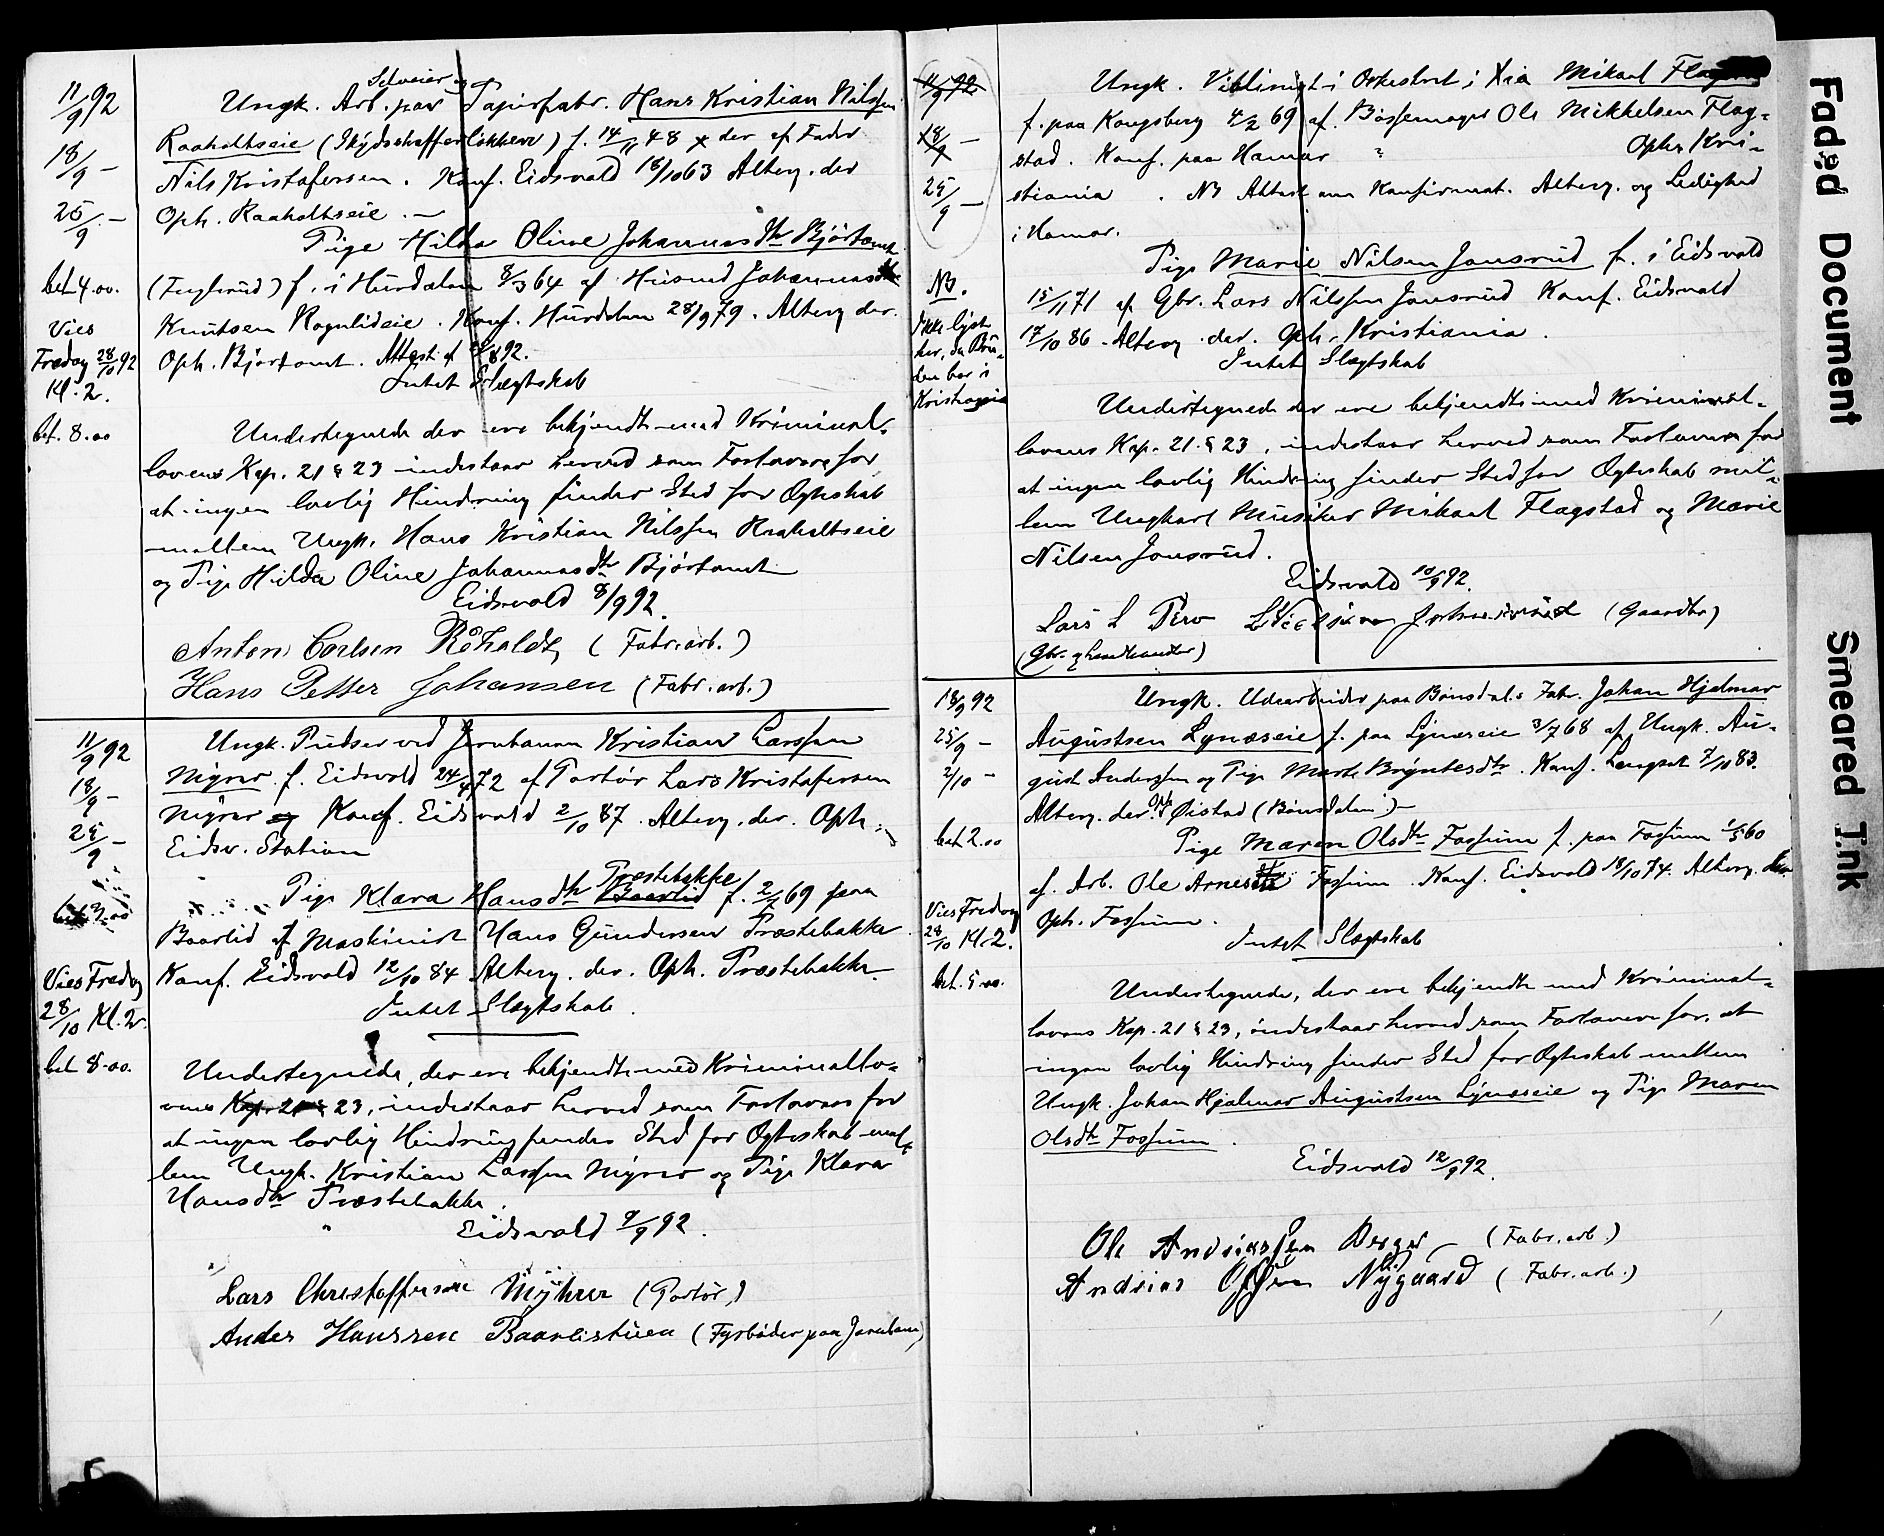 11/9 92
18/9 —
25/9 —
bet. 4.00.
Vies
Fredag 28/10 92
Kl. 2.
bet. 8.00
Selveier og
Ungk. Arb. paa Papirfabr. Hans Kristian Nilssen
Raaholtseie (Skydsskafferløkken) f. 14/11 48 der af Fader
Nils Kristofersen. Konf. Eidsvald 18/10 63 Alterg. der
Oph. Raaholtseie. —
Pige Hilda Oline Johannesdtr Bjørtomt
f. i Hurdalen 8/3 64 af Husmd Johannes
Knutsen Rognlideie. Konf. Hurdalen 28/9 79. Alterg der.
Oph. Bjørtomt. Attest af 92.
Intet Slægtskab
Undertegnede der ere bekjendte med Kriminal-
lovens Kap. 21 § 23 indestaar herved som Forlovere for
at ingen lovlig Hindring finder Sted for Ægteskab
mellem Ungk. Hans Kristian Nilssen Raaholtseie
og Pige Hilda Oline Johannesdtr Bjørtomt
Eidsvold 8/9 92.
Anton Carlsen Råholdt (Fabr. arb.)
Hans Petter Johansen (Fabr. arb.)
11/9 92
18/9 —
25/9 —
bet 3.00
Vies Fredag
28/10 Kl. 2.
bet 8.00.
Ungk. Pudser ved Jernbanen Kristian Larssen
Myrer f. Eidsvold 24/4 72 af Portør Lars Kristofersen
Myrer og Konf. Eidsvold 2/10 87. Alterg. der. Oph.
Eidsv. Station
Præstebakke
Pige Klara Hansdtr Baarlid f. 69 paa
Baarlid af Maskinist Hans Gundersen Præstebakke
Konf. Eidsvold 12/10 84 Alterg. der. Oph. Præstebakke
Intet Slægtskab.
Undertegnede, der ere bekjendte med Kriminallo-
vens Kap. 21 § 23, indestaar herved som Forlovere for
at ingen lovlig Hindring finder Sted for Ægteskab mel-
lem Ungk. Kristian Larssen Myrer og Pige Klara
Hansdtr Præstebakke.
Eidsvold 9/9 92.
Lars Christoffersen Myhrer (Portør)
Anders Hanssen Baarlistuen (Fyrbøder paa Jernbanen)
11/9 92
18/9 —
25/9 —
NB.
Ikke lyst
her, da Bru-
den bor i
Kristiania
Ungk. Violinist i Orkestret i Xia Mikael
f. paa Kongsberg 4/2 69 af Bøssemager Ole Mikkelsen Flag-
stad. Konf. paa Hamar " Oph. Kri-
stiania. NB Attest om Konfirmat. Alterg. og Ledighed
i Hamar.
Pige Marie Nilsen Jønsrud f. i Eidsvold
15/11 71 af Gbr. Lars Nilssen Jønsrud Konf. Eidsvold
17/10 86. Alterg. der. Oph. Kristiania.
Intet Slægtskab
Undertegnede der ere bekjendte med Kriminal-
lovens Kap. 21 § 23, indestaar herved som Forlovere for
at ingen lovlig Hindring finder Sted for Ægteskab mel-
lem Ungkarl Musiker Mikael Flagstad og Marie
Nilsen Jønsrud.
Eidsvold 10/9 92.
Lars L (Gaardbr)
(Gbr. og Landhandler)
18/9 92
25/9 —
2/10 —
bet 2.00
Vies Fredag
28/10 Kl. 2.
bet. 5.00.
Ungk. Udearbeider paa Bønsdal.s Fabr. Johan Hjalmar
Augustsen Lynæseie f. paa Lynæseie 3/7 68 af Ungk. Au-
gust Anderssen og Pige Marte Bryntesdtr. Konf. Langset 7/10 83.
Alterg. der. Oph. Øistad (Bønsdalen). —
Pige Maren Olsdtr Fossum f. paa Fossum 1/5 60
af Arb. Ole Arnesen Fossum. Konf. Eidsvold 18/10 74. Alterg. der
Oph. Fossum.
Intet Slægtskab
Undertegnede, der ere bekjendte med Kriminal-
lovens Kap. 21 § 23, indestaar herved som Forlovere for, at
ingen lovlig Hindring finder Sted for Ægteskab mellem
Ungk. Johan Hjalmar Augustsen Lynæseie og Pige Maren
Olsdtr Fossum.
Eidsvold 12/9 92.
Ole Andreassen Berger (Fabr. arb.)
Andreas Nygaard (Fabr. arb.)
Faded Document
Smeared Ink